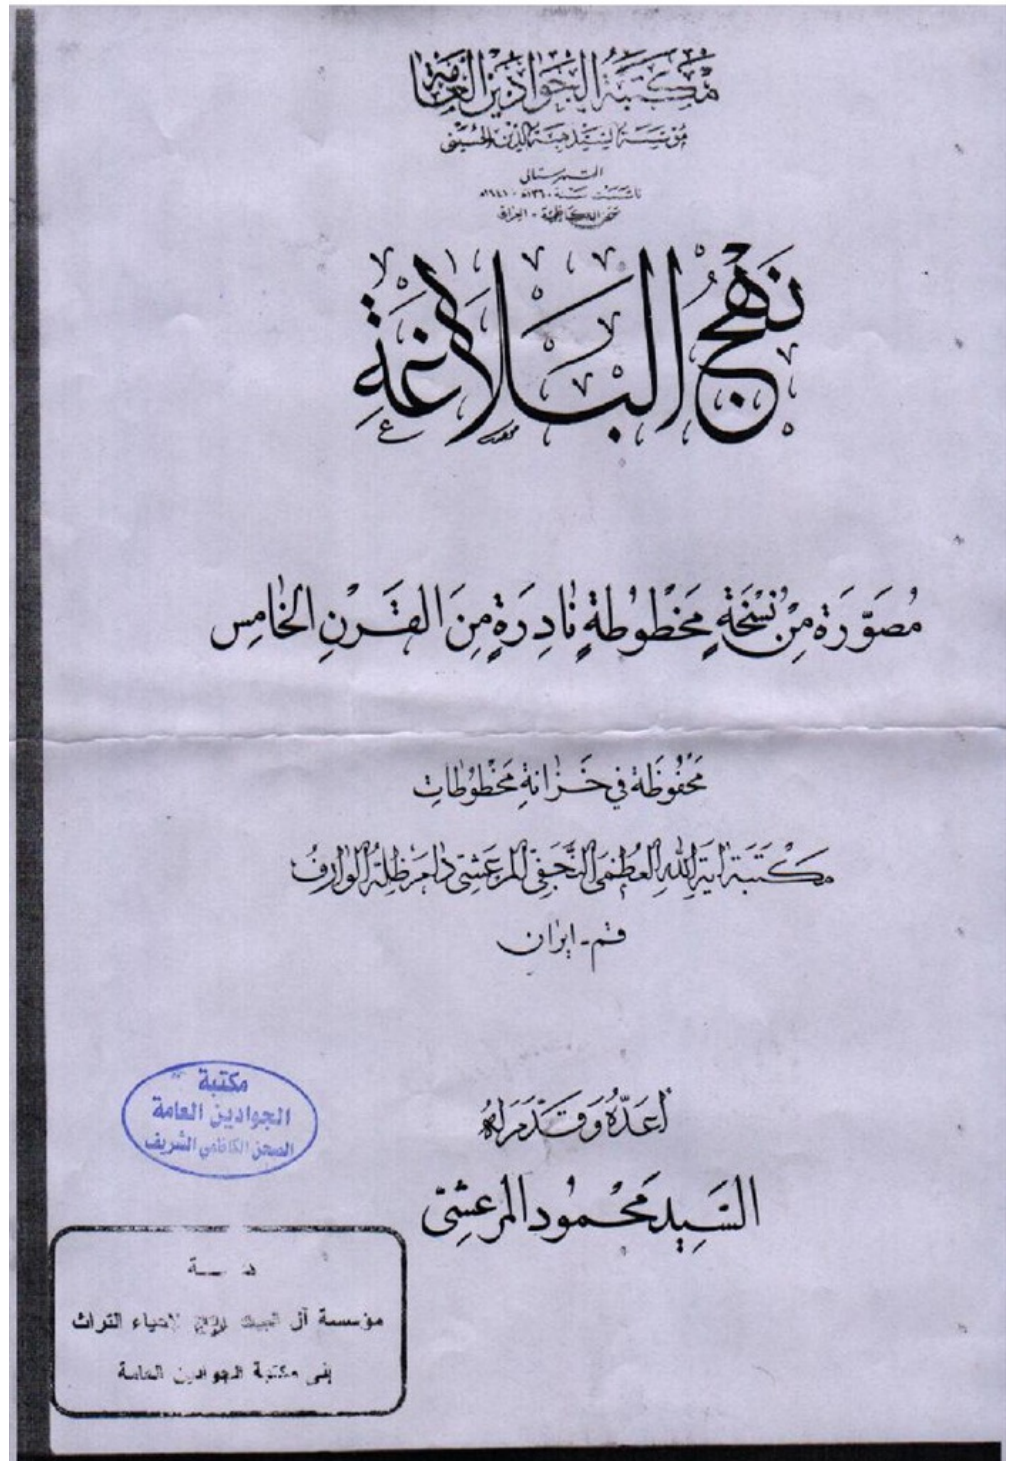 مكتبة الجوادين العامة
مؤسسة السيد هبة الدين الحسيني
الشهرستاني
تاسست سنة ١٣٦٠هـ - ١٩٤١م
صحن الكاظمية - العراق
نَهْجُ البَلاغَةِ
مُصَوَّرَة مِنْ نُسْخَةٍ مَخْطُوطَةٍ نادِرَةٍ مِنَ القَرْنِ الخامِس
مَحْفُوظَة في خَزانَةِ مَخْطُوطاتِ
مكتَبَة اية الله العُظمى النَّجَفي المرعَشي دامَ ظِلّهُ الوارِفُ
قم - ايران
أعَدَّهُ وَقَدَّمَ لَهُ
السَّيِد مَحْمُود المرعشي
مكتبة
الجوادين العامة
الصحن الكاظمي الشريف
مؤسسة آل البيت لإحياء التراث
إلى مكتبة الجوادين العامة